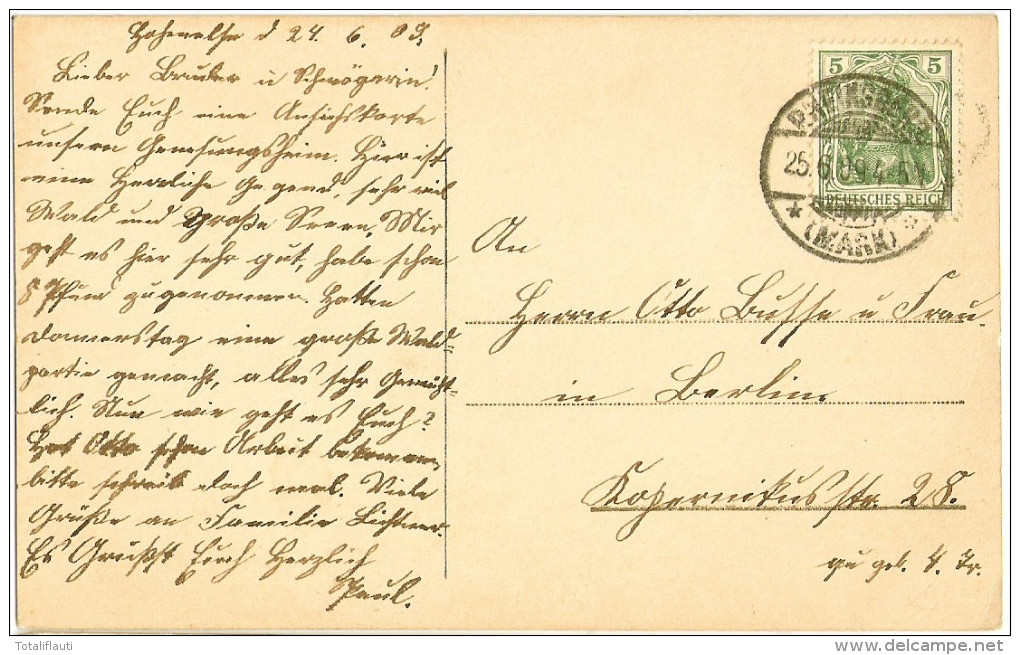 Hohenelse d 24. 6. 09.
Lieber Bruder u Schwägerin!
Sende Euch eine Ansichskarte
unsern Genesungsheim. Hier ist
eine Herzliche Gegend, sehr viel
Wald und große Seeen, Mir
geht es hier sehr gut, habe schon
8 Pfund zugenommen. Hatten
Donnerstag eine große Wald-
partie gemacht, alles sehr Gemüht-
lich. Nun wie geht es Euch?
Hat Otto schon Arbeit bekommen,
bitte schreib doch mal. Viele
Grüße an Familie Lichtner.
Es Grüßst Euch Herzlich
Paul.
5 5
DEUTSCHES REICH
25.6.09
(MARK)
An
Herrn Otto Busse u Frau.
in Berlin.
Kopernikusstr. 28.
4. Tr.
Totaliflauti
www.delcampe.net